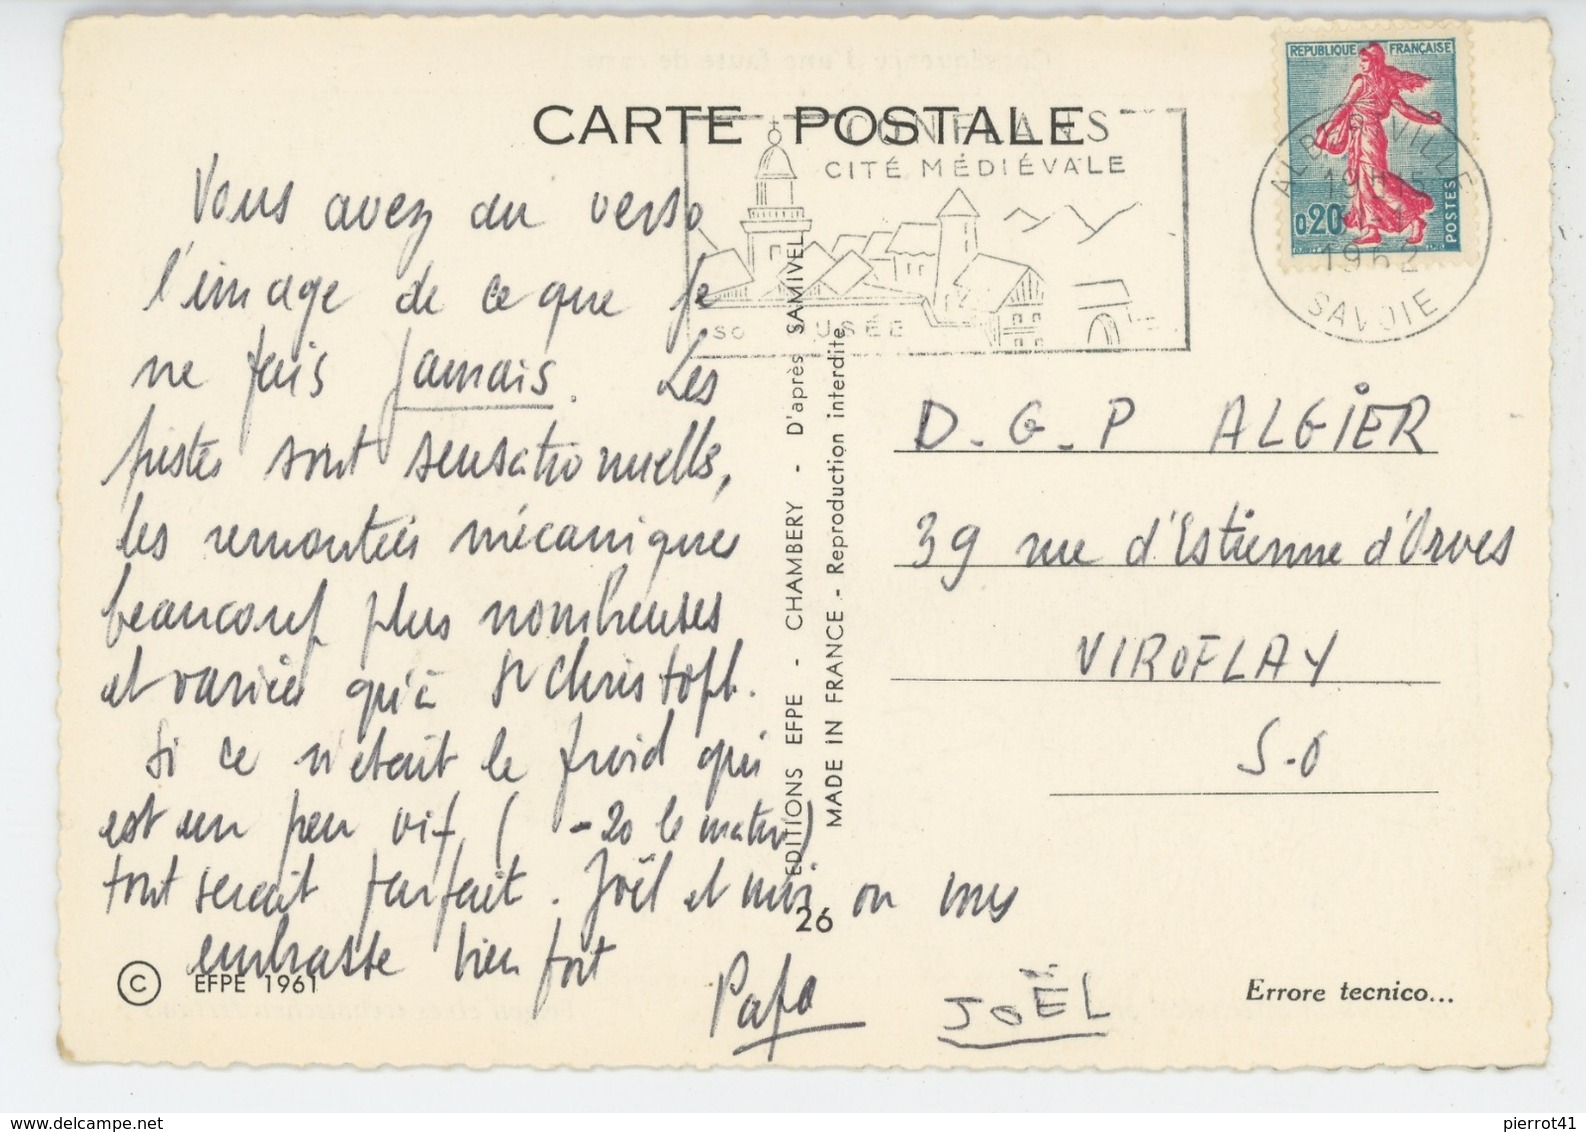 CARTE POSTALE
REPUBLIQUE FRANÇAISE
0,20
POSTES
CONFLANS
CITÉ MÉDIÉVALE
ALBERTVILLE
1962
SAVOIE
Vous avez au verso
l'image de ce que je
ne fais jamais. Les
pistes sont sensationnelles,
les remontées mécaniques
beaucoup plus nombreuses
et variées qu'à St Christoph.
Si ce n'était le froid qui
est un peu vif (-20 le matin)
tout serait parfait. Joël et moi on vous
embrasse bien fort
Papa
JOËL
D.G.P ALGIER
39 rue d'Estienne d'Orves
VIROFLAY
S.O
EDITIONS EFPE - CHAMBERY - D'après SAMIVEL
MADE IN FRANCE - Reproduction interdite
26
© EFPE 1961
Errore tecnico...
pierrot41